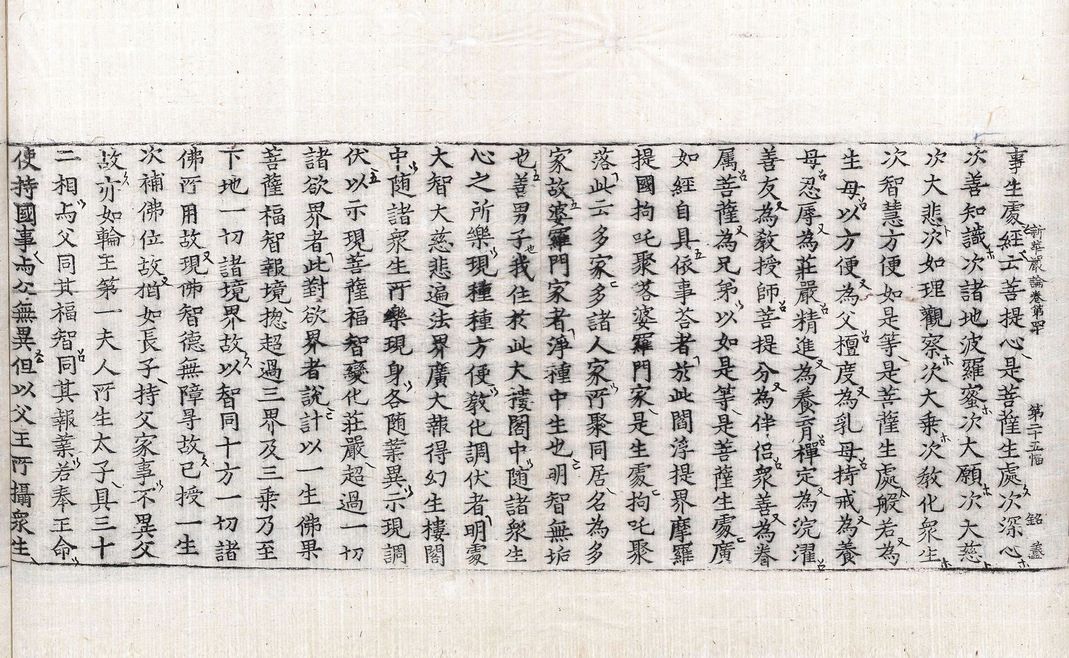 新華嚴論卷第四十 第二十五幅 銘 蓋
事生處經云菩提心是菩薩生處次深心
次善知識次諸地波羅蜜次大願次大慈
次大悲次如理觀察次大乘次教化衆生
次智慧方便如是等是菩薩生處般若為
生母以方便為父檀度為乳母持戒為養
母忍辱為莊嚴精進為養育禪定為浣濯
善友為教授師菩提分為伴侶衆善為眷
属菩薩為兄弟以如是等是菩薩生處廣
如經自具依事荅者於此閻浮提界摩羅
提國拘吒聚落婆羅門家是生處拘吒聚
落此云多家多諸人家所聚同居名為多
家故婆羅門家者淨種中生也明智無垢
也善男子我住於此大樓閣中随諸衆生
心之所樂現種種方便教化調伏者明處
大智大慈悲遍法界廣大報得幻生樓閣
中随諸衆生所樂現身各随業異示現調
伏以示現菩薩福智變化莊嚴超過一切
諸欲界者此對欲界者說計以一生佛果
菩薩福智報境惣超過三界及三乘乃至
下地一切諸境界故以智同十方一切諸
佛所用故現佛智德無障㝵故已授一生
次補佛位故猶如長子持父家事不異父
故亦如輪王第一夫人所生太子具三十
二相与父同其福智同其報業若奉王命
使持國事与父無異但以父王所攝衆生